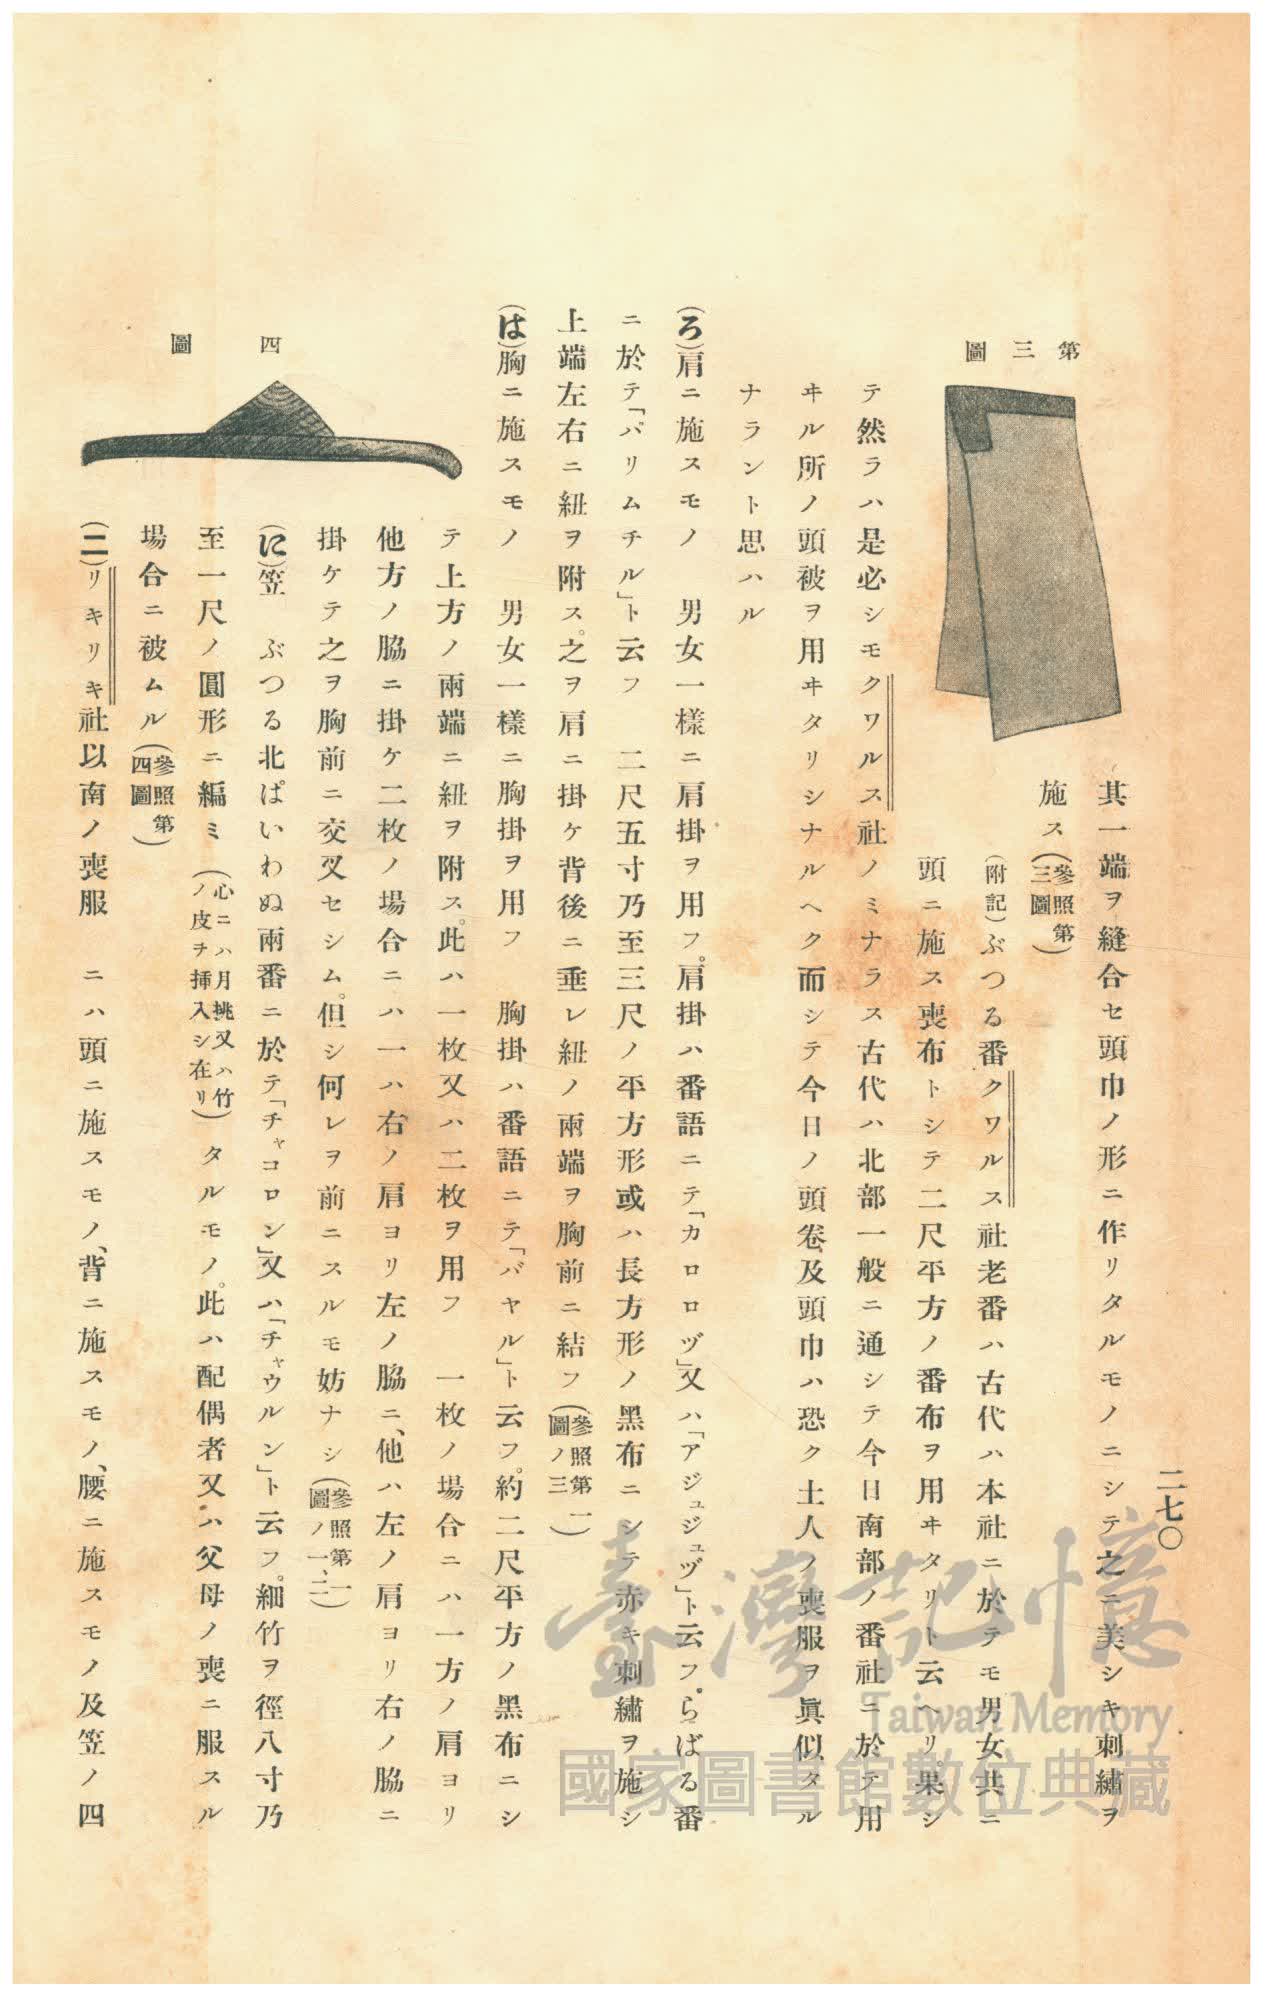 二七〇
第三圖
其一端ヲ縫合セ頭巾ノ形ニ作リタルモノニシテ之ニ美シキ刺繡ヲ
施ス(參照第三圖)
(附記)ぶつる番クワルス社老番ハ古代ハ本社ニ於テモ男女共ニ
頭ニ施ス喪布トシテ二尺平方ノ番布ヲ用ヰタリト云ヘリ。果シ
テ然ラハ是必シモクワルス社ノミナラス古代ハ北部一般ニ通シテ今日南部ノ番社ニ於テ用
ヰル所ノ頭被ヲ用ヰタリシナルヘク而シテ今日ノ頭卷及頭巾ハ恐ク土人ノ喪服ヲ眞似タル
ナラント思ハル
(ろ)肩ニ施スモノ 男女一樣ニ肩掛ヲ用フ。肩掛ハ番語ニテ「カロロヅ」又ハ「アジュジュヅ」ト云フ。らばる番
ニ於テ「パリムチル」ト云フ 二尺五寸乃至三尺ノ平方形或ハ長方形ノ黑布ニシテ赤キ刺繡ヲ施シ
上端左右ニ紐ヲ附ス。之ヲ肩ニ掛ケ背後ニ垂レ紐ノ兩端ヲ胸前ニ結フ(參照第一圖ノ三)
(は)胸ニ施スモノ 男女一樣ニ胸掛ヲ用フ 胸掛ハ番語ニテ「バヤル」ト云フ。約二尺平方ノ黑布ニシ
テ上方ノ兩端ニ紐ヲ附ス。此ハ一枚又ハ二枚ヲ用フ 一枚ノ場合ニハ一方ノ肩ヨリ
他方ノ脇ニ掛ケ二枚ノ場合ニハ一ハ右ノ肩ヨリ左ノ脇ニ、他ハ左ノ肩ヨリ右ノ脇ニ
掛ケテ之ヲ胸前ニ交叉セシム。但シ何レヲ前ニスルモ妨ナシ(參照第一圖ノ一、二)
四圖
(に)笠 ぶつる北ぱいわぬ兩番ニ於テ「チャコロン」又ハ「チャウルン」ト云フ。細竹ヲ徑八寸乃
至一尺ノ圓形ニ編ミ(心ニハ月桃又ハ竹ノ皮ヲ挿入シ在リ)タルモノ。此ハ配偶者又ハ父母ノ喪ニ服スル
場合ニ被ムル(參照第四圖)
(二)リキリキ社以南ノ喪服 ニハ頭ニ施スモノ、背ニ施スモノ、腰ニ施スモノ及笠ノ四
臺灣記憶
Taiwan Memory
國家圖書館數位典藏